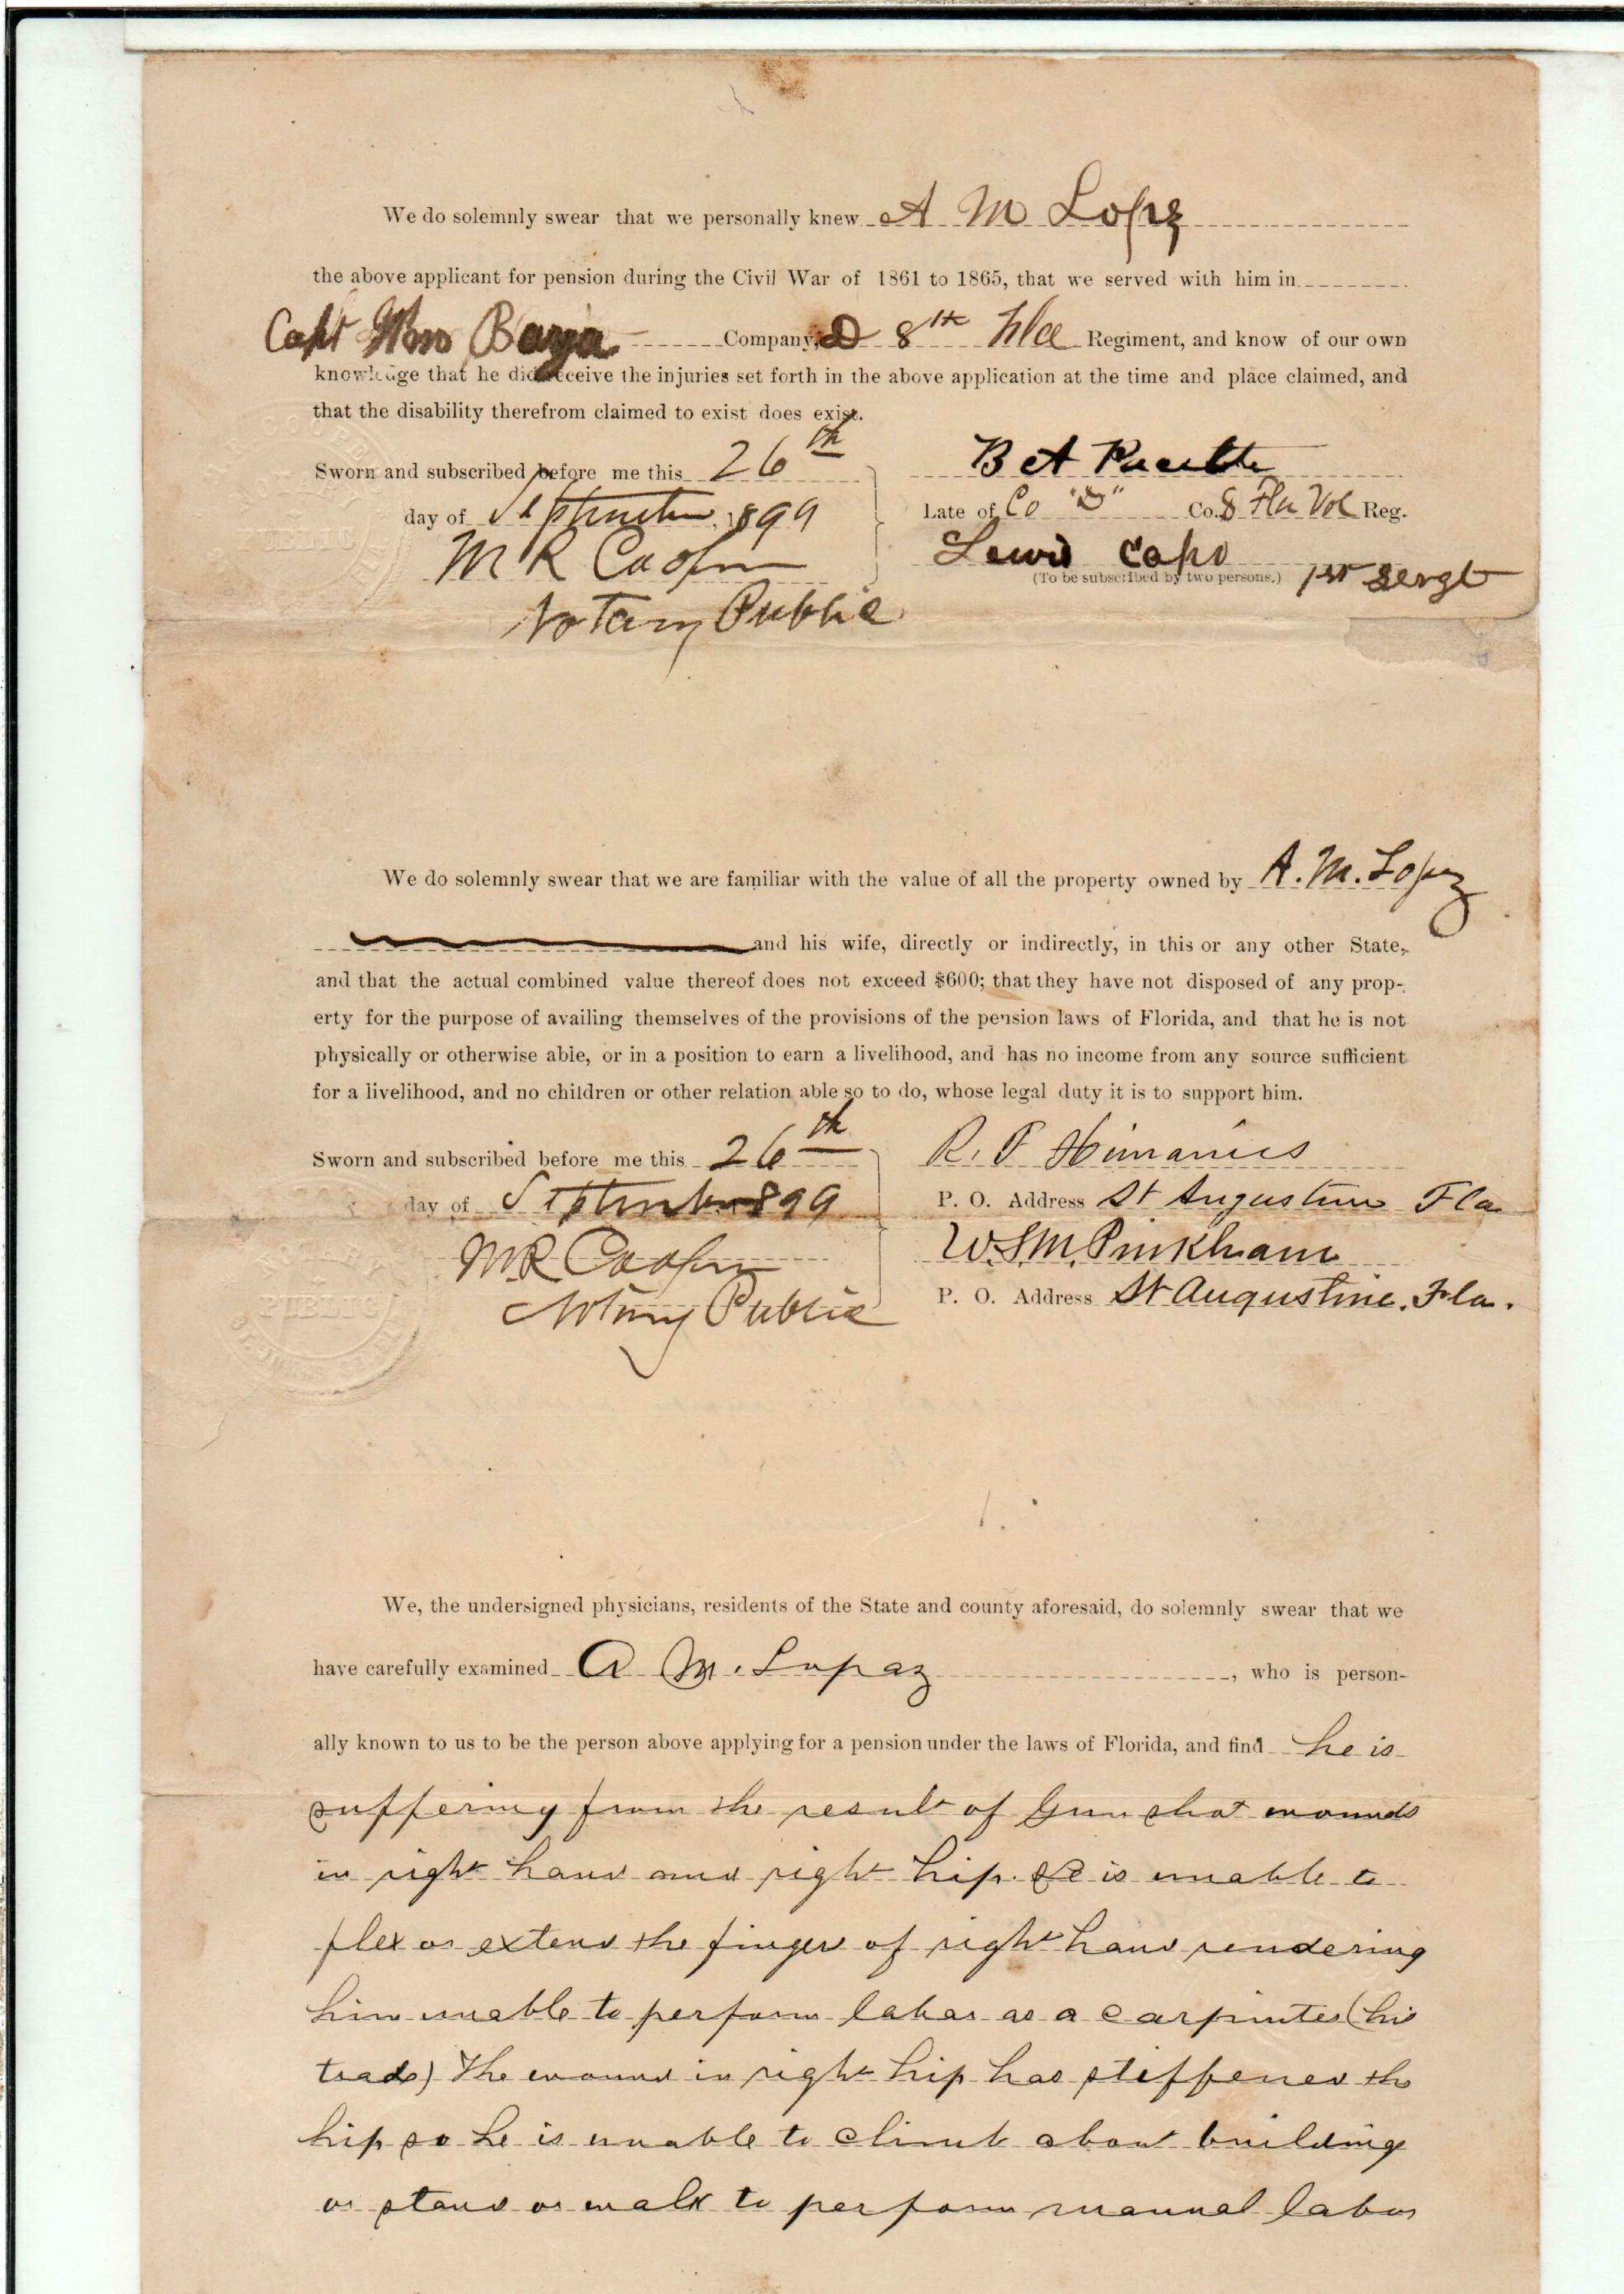 We do solemnly swear that we personally knew A M Lopez
the above applicant for pension during the Civil War of 1861 to 1865, that we served with him in
Capt Wm Baya Company, D 8th Fla Regiment, and know of our own
knowledge that he did receive the injuries set forth in the above application at the time and place claimed, and
that the disability therefrom claimed to exist does exist.
Sworn and subscribed before me this 26th
day of September 1899
M R Cooper
Notary Public
B A
Late of Co "D" Co. 8 Fla Vol Reg.
Lewis Capo
(To be subscribed by two persons.) 1st Sergt
We do solemnly swear that we are familiar with the value of all the property owned by A. M. Lopez
and his wife, directly or indirectly, in this or any other State,
and that the actual combined value thereof does not exceed $600; that they have not disposed of any prop-
erty for the purpose of availing themselves of the provisions of the pension laws of Florida, and that he is not
physically or otherwise able, or in a position to earn a livelihood, and has no income from any source sufficient
for a livelihood, and no children or other relation able so to do, whose legal duty it is to support him.
Sworn and subscribed before me this 26th
day of September 1899
M R Cooper
Notary Public
R. F.
P. O. Address St Augustine Fla
W. S. M. Pinkham
P. O. Address St Augustine. Fla.
PUBLIC
We, the undersigned physicians, residents of the State and county aforesaid, do solemnly swear that we
have carefully examined A M. Lopaz, who is person-
ally known to us to be the person above applying for a pension under the laws of Florida, and find he is
suffering from the result of Gun shot wounds
in right hand and right hip. He is unable to
flex or extend the finger of right hand rendering
him unable to perform labor as a carpinter (his
trade) The wound in right hip has stiffened the
hip so he is unable to climb about building
or stand or walk to perform manual labor